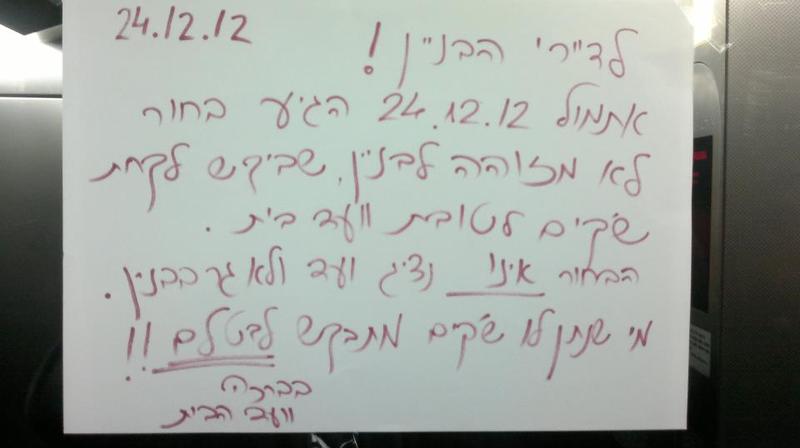 24.12.12
לדיירי הבניין!
אתמול 24.12.12 הגיע בחור
לא מזוהה לבניין, שביקש לקחת
שקים לטובת וועד בית.
הבחור אינו נציג ועד ולא גר בבניין.
מי שנתן לו שקים מתבקש לבטלם!!
בברכה
וועד הבית